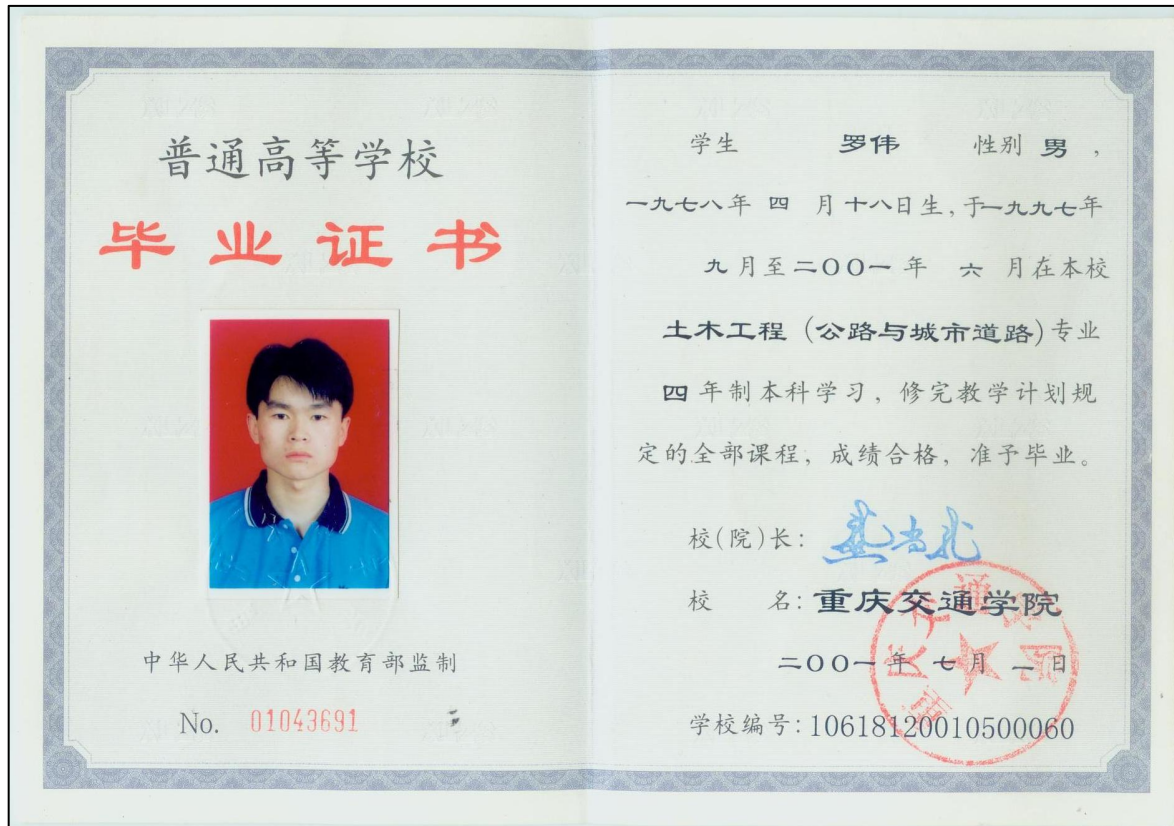 普通高等学校
毕业证书
中华人民共和国教育部监制
No. 01043691
学生 罗伟 性别 男,
一九七八年 四 月十八日生,于一九九七年
九月至二〇〇一年 六 月在本校
土木工程(公路与城市道路)专业
四年制本科学习,修完教学计划规
定的全部课程,成绩合格,准予毕业。
校(院)长:
校 名:重庆交通学院
二〇〇一年 七月 二日
学校编号:10618120010500060
重庆交通学院